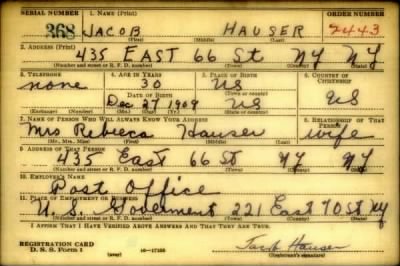 SERIAL NUMBER 1. NAME (Print) ORDER NUMBER
368 JACOB HAUSER 2443
(First) (Middle) (Last)
2. ADDRESS (Print)
435 EAST 66 St NY NY
(Number and street or R. F. D. number) (Town) (County) (State)
3. TELEPHONE 4. AGE IN YEARS 5. PLACE OF BIRTH 6. COUNTRY OF CITIZENSHIP
none 30 US
DATE OF BIRTH (Town or county)
Dec 27 1909 US US
(Exchange) (Number) (Mo.) (Day) (Yr.) (State or country)
7. NAME OF PERSON WHO WILL ALWAYS KNOW YOUR ADDRESS 8. RELATIONSHIP OF THAT PERSON
Mrs Rebecca Hauser wife
(Mr., Mrs., Miss) (First) (Middle) (Last)
9. ADDRESS OF THAT PERSON
435 East 66 St NY NY
(Number and street or R. F. D. number) (Town) (County) (State)
10. EMPLOYER'S NAME
Post Office
11. PLACE OF EMPLOYMENT OR BUSINESS
U.S. Government 221 East 70 St NY
(Number and street or R. F. D. number) (Town) (County) (State)
I AFFIRM THAT I HAVE VERIFIED ABOVE ANSWERS AND THAT THEY ARE TRUE.
REGISTRATION CARD
D. S. S. Form 1 (over) Jacob Hauser
(Registrant's signature)